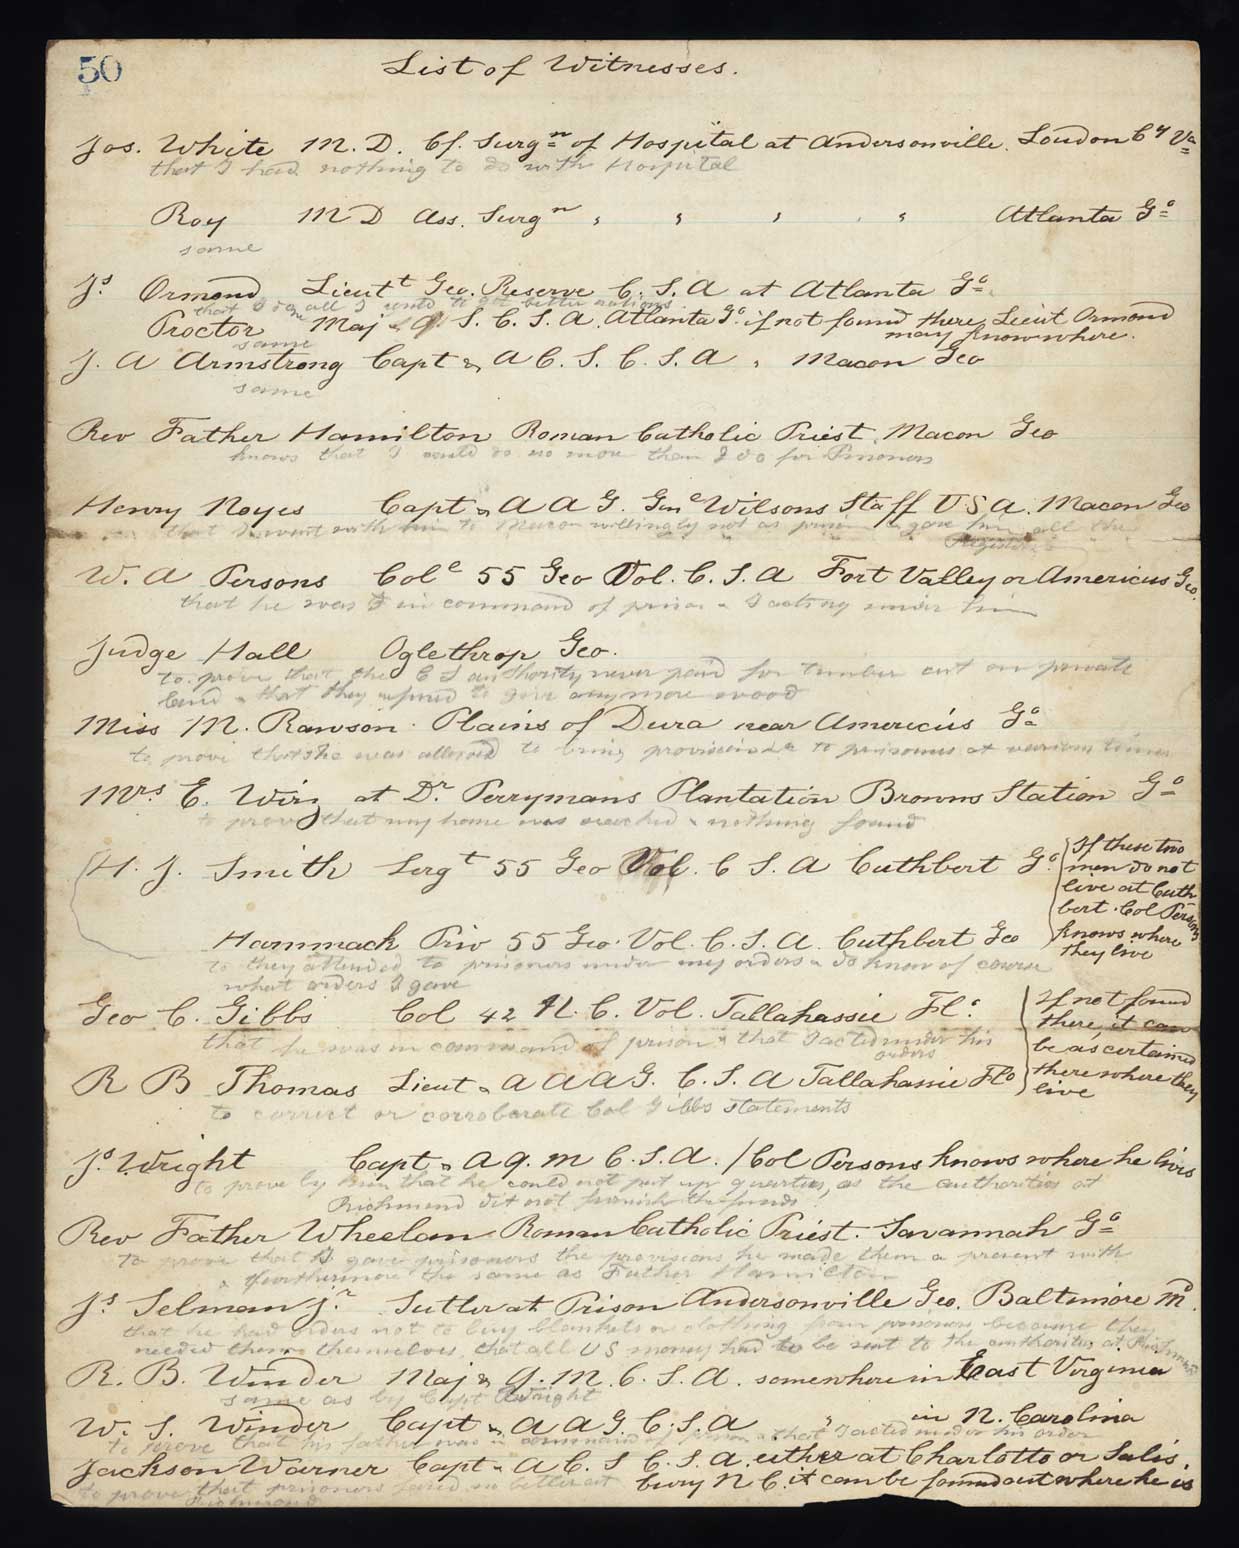 50
List of Witnesses.
Jos. White M. D. Cf. Surgn of Hospital at Andersonville. Loudon Cy Va
that I had nothing to do with Hospital
Roy M D Ass. Surgn " " " " Atlanta Ga
same
Js Ormond Lieutt Geo. Reserve C. S. A at Atlanta Ga.
that I did all I could to get better rations
Proctor Maj & Q. S. C. S. A. Atlanta Ga if not found there Lieut Ormond
may know where.
same
J. A Armstrong Capt & A C. S. C. S. A " Macon Geo
same
Rev Father Hamilton Roman Catholic Priest. Macon Geo
knows that I could do no more than I do for Prisoners
Henry Noyes Capt & A A G. Genl Wilsons Staff U S A. Macon Geo
that I went with him to Macon willingly not as prison & gave him all the
W. A Persons Coll 55 Geo Vol. C. S. A Fort Valley or Americus Geo.
that he was in command of prison & I acting under him
Judge Hall Oglethrop Geo.
to prove that the C S authority never paid for timber cut on private
land & that they refused to give any more wood
Miss M. Rawson. Plains of Dura near Americus Ga
to prove that she was allowed to bring provisions to prisoners at various times
Mrs E. Wirz at Dr. Perrymans Plantation Browns Station Ga
to prove that my home was searched & nothing found
H. J. Smith Sergt 55 Geo Vol. C S. A Cuthbert Ga
If these two
men do not
live at Cuth
bert. Col Persons
knows where
they live
Hammack Priv 55 Geo. Vol. C. S. A. Cuthbert Geo
to they attended to prisoners under my orders & do know of course
what orders I gave
Geo C. Gibbs Col 42 N. C. Vol. Tallahassie Fl.
If not found
there, it can
be ascertained
there where they
live
that he was in command of prison & that I acted under his
orders
R B Thomas Lieut & A A A G. C. S. A Tallahassie Flo
to correct or corroborate Col Gibbs statements
Js. Wright Capt & A Q. M C. S. A. / Col Persons knows where he lives
to prove by him that he could not put up quarters, as the authorities at
Richmond did not furnish the funds
Rev Father Wheelan Roman Catholic Priest. Savannah Ga
to prove that I gave prisoners the provisions he made them a present with
& furthermore the same as Father Hamilton
Js Selman jr. Sutler at Prison Andersonville Geo. Baltimore Md.
that he had orders not to buy blankets or clothing from prisoners because they
needed them themselves, that all U S money had to be sent to the authorities at Richmond
R. B. Winder Maj & Q. M. C. S. A. somewhere in East Virginia
same as by Capt Wright
W. S. Winder Capt & A A G. C. S. A " in N. Carolina
to prove that his father was in command of prison & that I acted under his order
Jackson Warner Capt & A C. S C. S. A. either at Charlotto or Salis
bury N C. it can be found out where he is
to prove that prisoners
Richmond